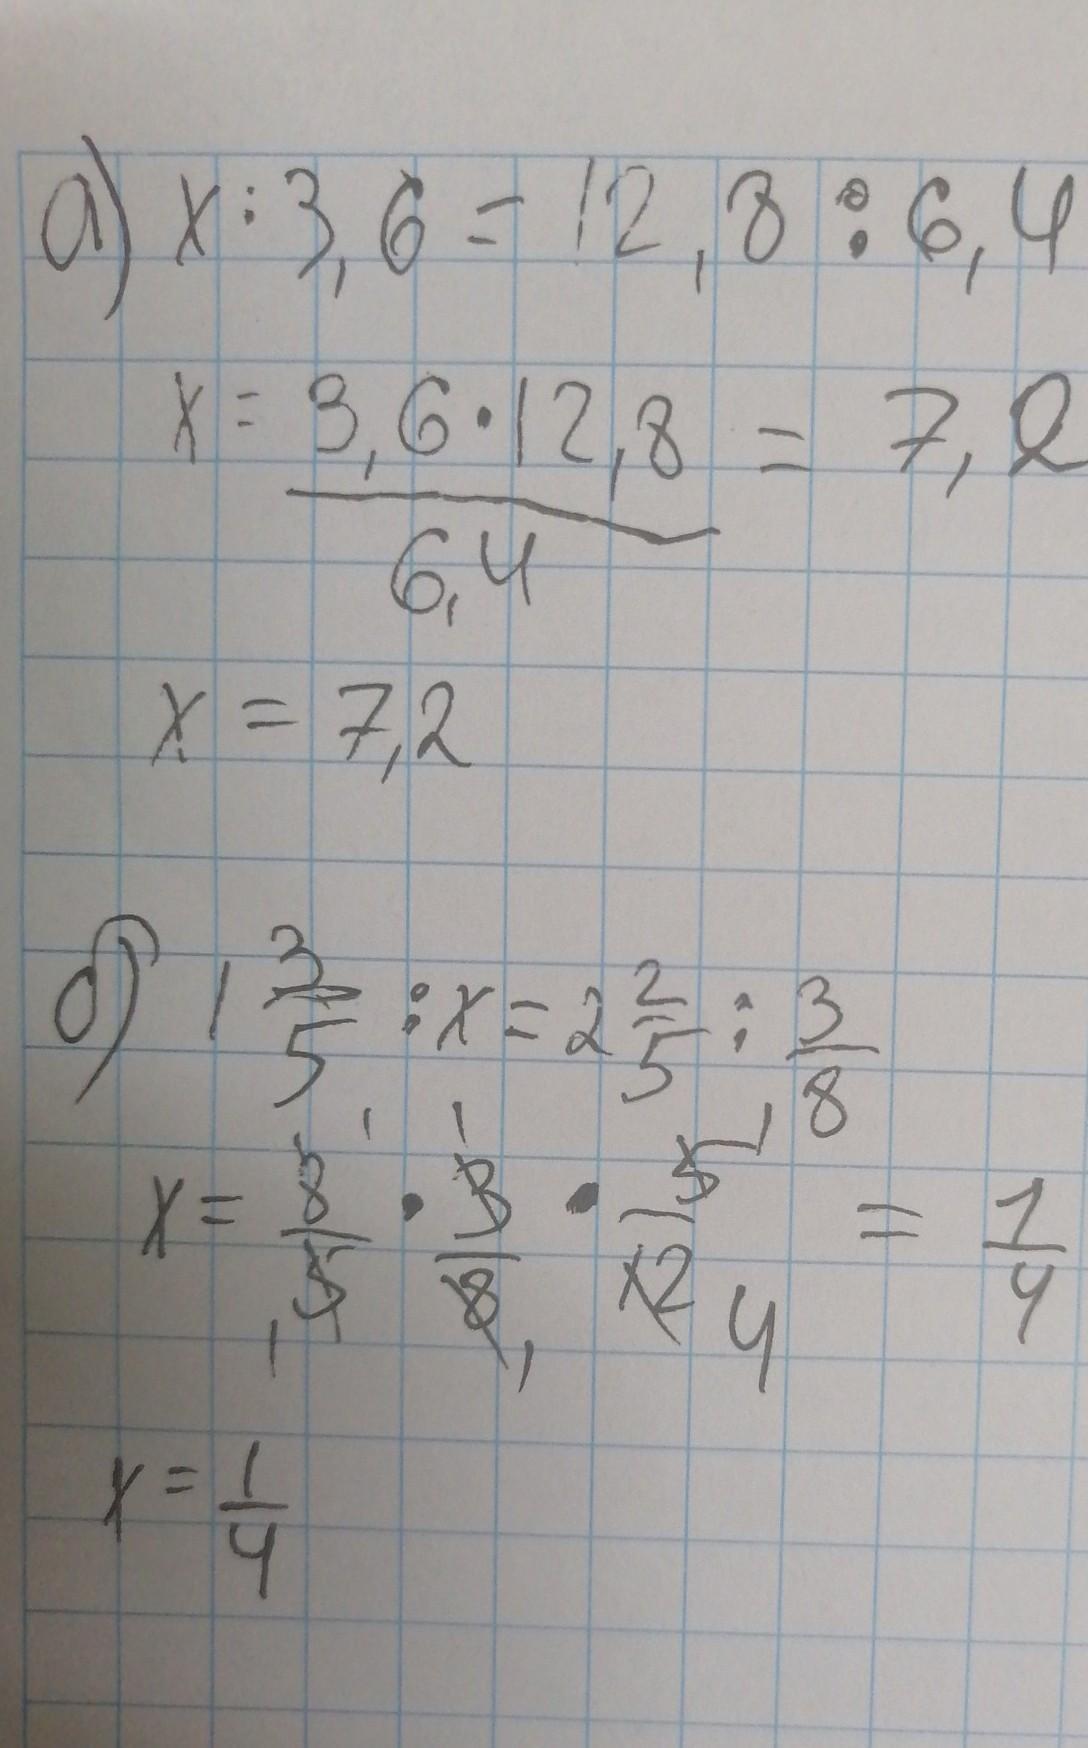 а) x : 3,6 = 12,8 : 6,4
x = 3,6 · 12,8 / 6,4 = 7,2
x = 7,2
б) 1 3/5 : x = 2 2/5 : 3/8
x = 8/5 · 3/8 · 5/12 = 1/4
x = 1/4